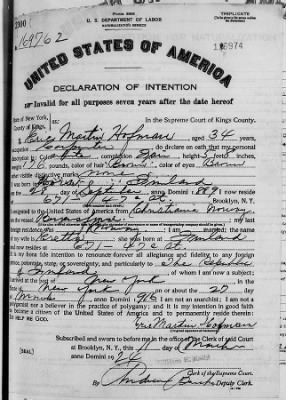 TRIPLICATE
U. S. DEPARTMENT OF LABOR
NATURALIZATION SERVICE
169762
UNITED STATES OF AMERICA
DECLARATION OF INTENTION
Invalid for all purposes seven years after the date hereof
of New York,
County of Kings,
In the Supreme Court of Kings County.
Eric Martin Hofman, aged 34 years,
occupation Carpenter, do declare on oath that my personal
description is: Color White, complexion Fair, height 5 feet 8 inches,
weight 176 pounds, color of hair Brown, color of eyes
other visible distinctive marks none
Finland
28 day of anno Domini 1889; I now reside
at 671 - 47th St., Brooklyn, N.Y.
emigrated to the United States of America from Christiania Norway
my last
foreign residence was Norway; I am married; the name
of my wife is; she was born at Finland
and now resides at 671 - 47th St.
It is my bona fide intention to renounce forever all allegiance and fidelity to any foreign
prince, potentate, state, or sovereignty, and particularly to The Republic
of Finland, of whom I am now a subject;
I arrived at the port of New York, in the
State of New York, on or about the 27 day
anno Domini 1916; I am not an anarchist; I am not a
polygamist nor a believer in the practice of polygamy; and it is my intention in good faith
to become a citizen of the United States of America and to permanently reside therein:
SO HELP ME GOD.
Eric Martin Hofman
(Original signature of declarant)
Subscribed and sworn to before me in the office of the Clerk of said Court
at Brooklyn, N.Y., this 11 day of March
[SEAL] anno Domini 1924
Clerk of the Supreme Court.
By Deputy Clerk.